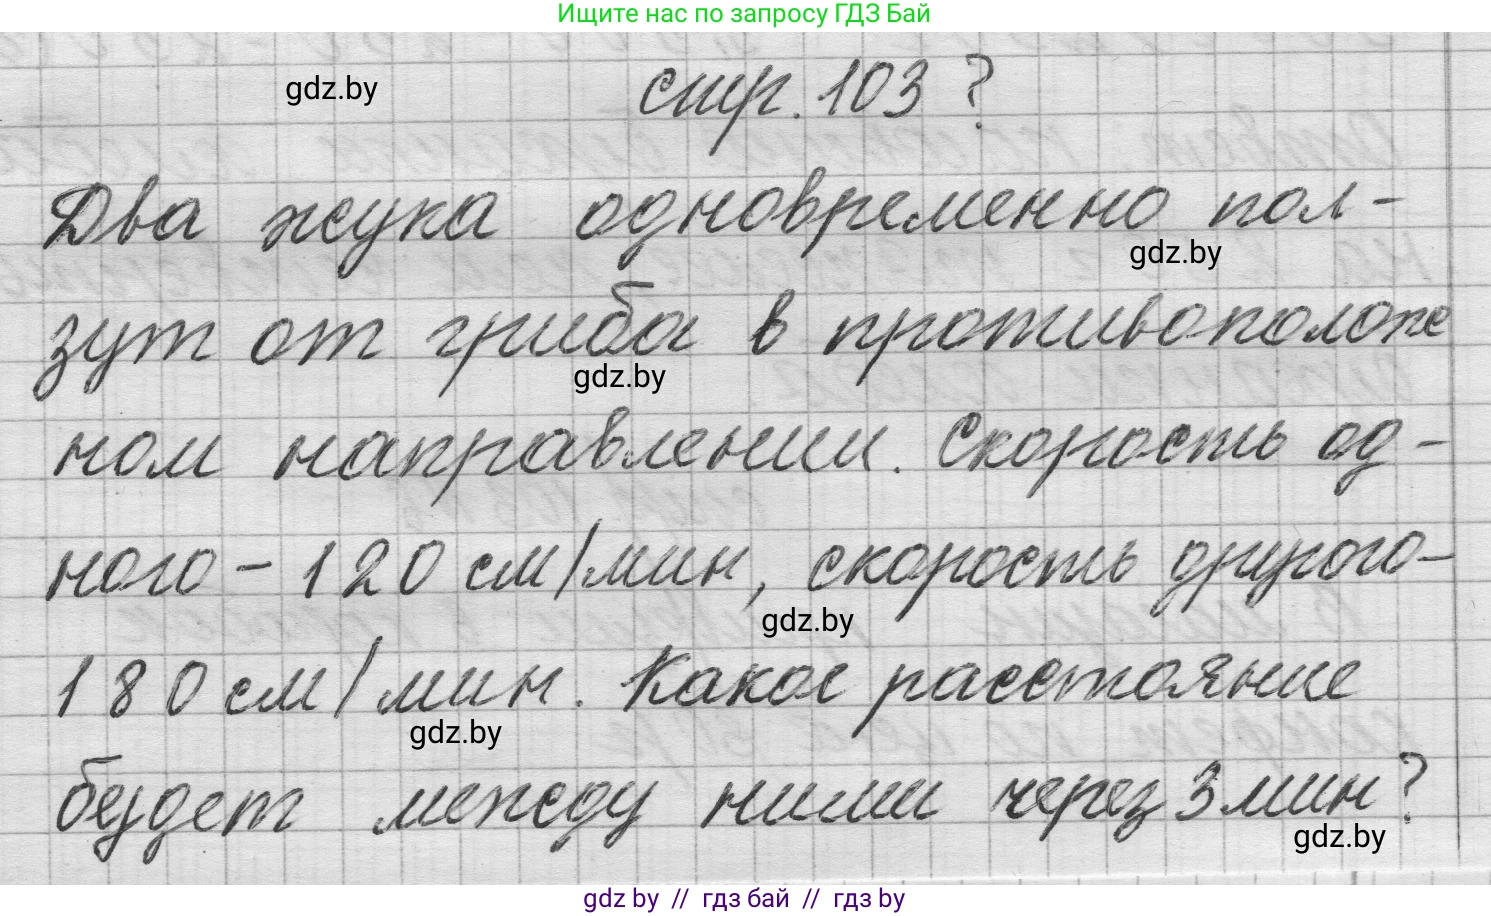 Ищите нас по запросу ГДЗ Бай
gdz.by
стр. 103 ?
Два жука одновременно пол-
gdz.by
зут от гриба в противополож
gdz.by
ном направлении. Скорость од-
ного - 120 см/мин, скорость другого-
gdz.by
180 см/мин. Какое расстояние
gdz.by
будет между ними через 3 мин?
gdz.by
gdz.by // гдз бай // гдз by